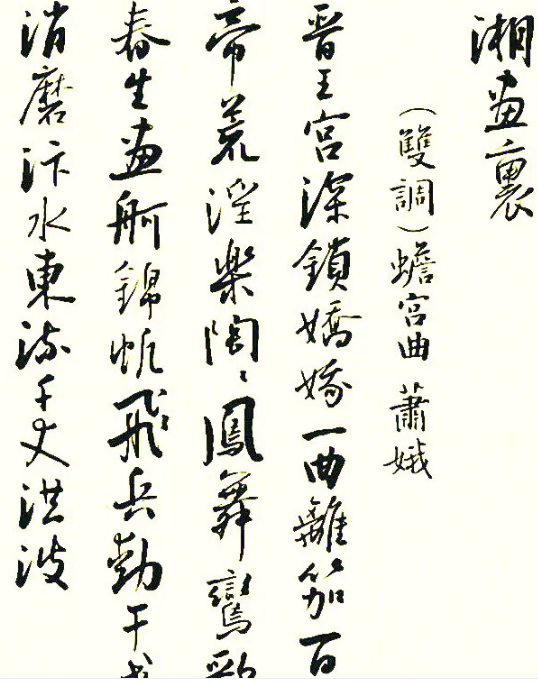 湘畫裏
（雙調）蟾宮曲 蕭娥
晋王宮深鎖嬌娥一曲離笳百
帝荒淫樂陶〻鳳舞鸞歌
春生畫舸錦帆飛兵動干戈
消磨汴水東流千丈洪波